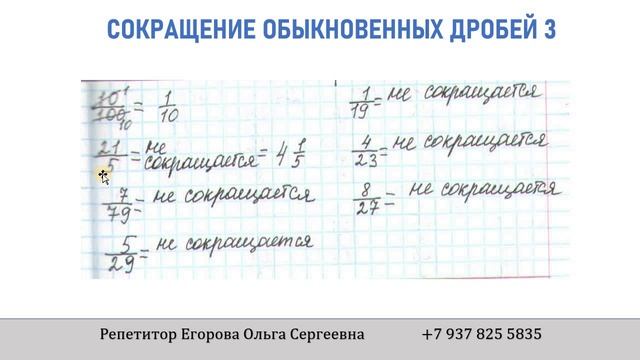 СОКРАЩЕНИЕ ОБЫКНОВЕННЫХ ДРОБЕЙ 3
10/100 = 1/10
1
10
21/5 = не сокращается = 4 1/5
7/79 = не сокращается
5/29 = не сокращается
1/19 = не сокращается
4/23 = не сокращается
8/27 = не сокращается
Репетитор Егорова Ольга Сергеевна +7 937 825 5835